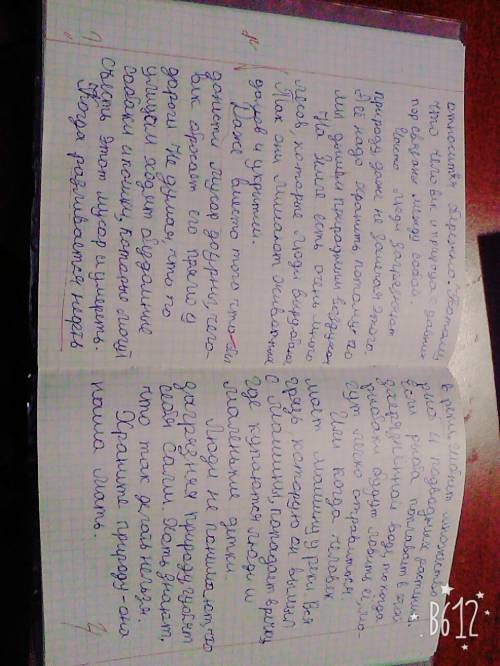 относиться бережно. Потому
что человек и природа давно
повязаны между собой.
Часто люди загрязняют
природу даже не замечая этого.
Её надо хранить потому что
мы дышим природным воздухом.
На Земле есть очень много
лесов, которые люди вырубают.
Так они лишают животных
домов и укрытий.
Даже вместо того что бы
донести мусор до урны, чело-
век бросает его прямо у
дороги. Не думая, что по
улицам ходят бездомные
собаки и кошки, которые могут
съесть этот мусор и умереть.
Когда разливается нефть
в реки, гибнет множество
рыб и подводных растений.
Если рыба поплавает в этой
загрязнённой воде, то когда
рыбаки будут ловить её, мо-
гут легко отравиться.
Или когда человек
моет машину у реки. Вся
грязь которую он вымыл
с машины, попадает в речку,
где купаются люди и
маленькие детки.
Люди не понимают, что
загрязняя природу губят
себя сами. Хоть знают,
что так делать нельзя.
Храните природу она
наша мать.
B612